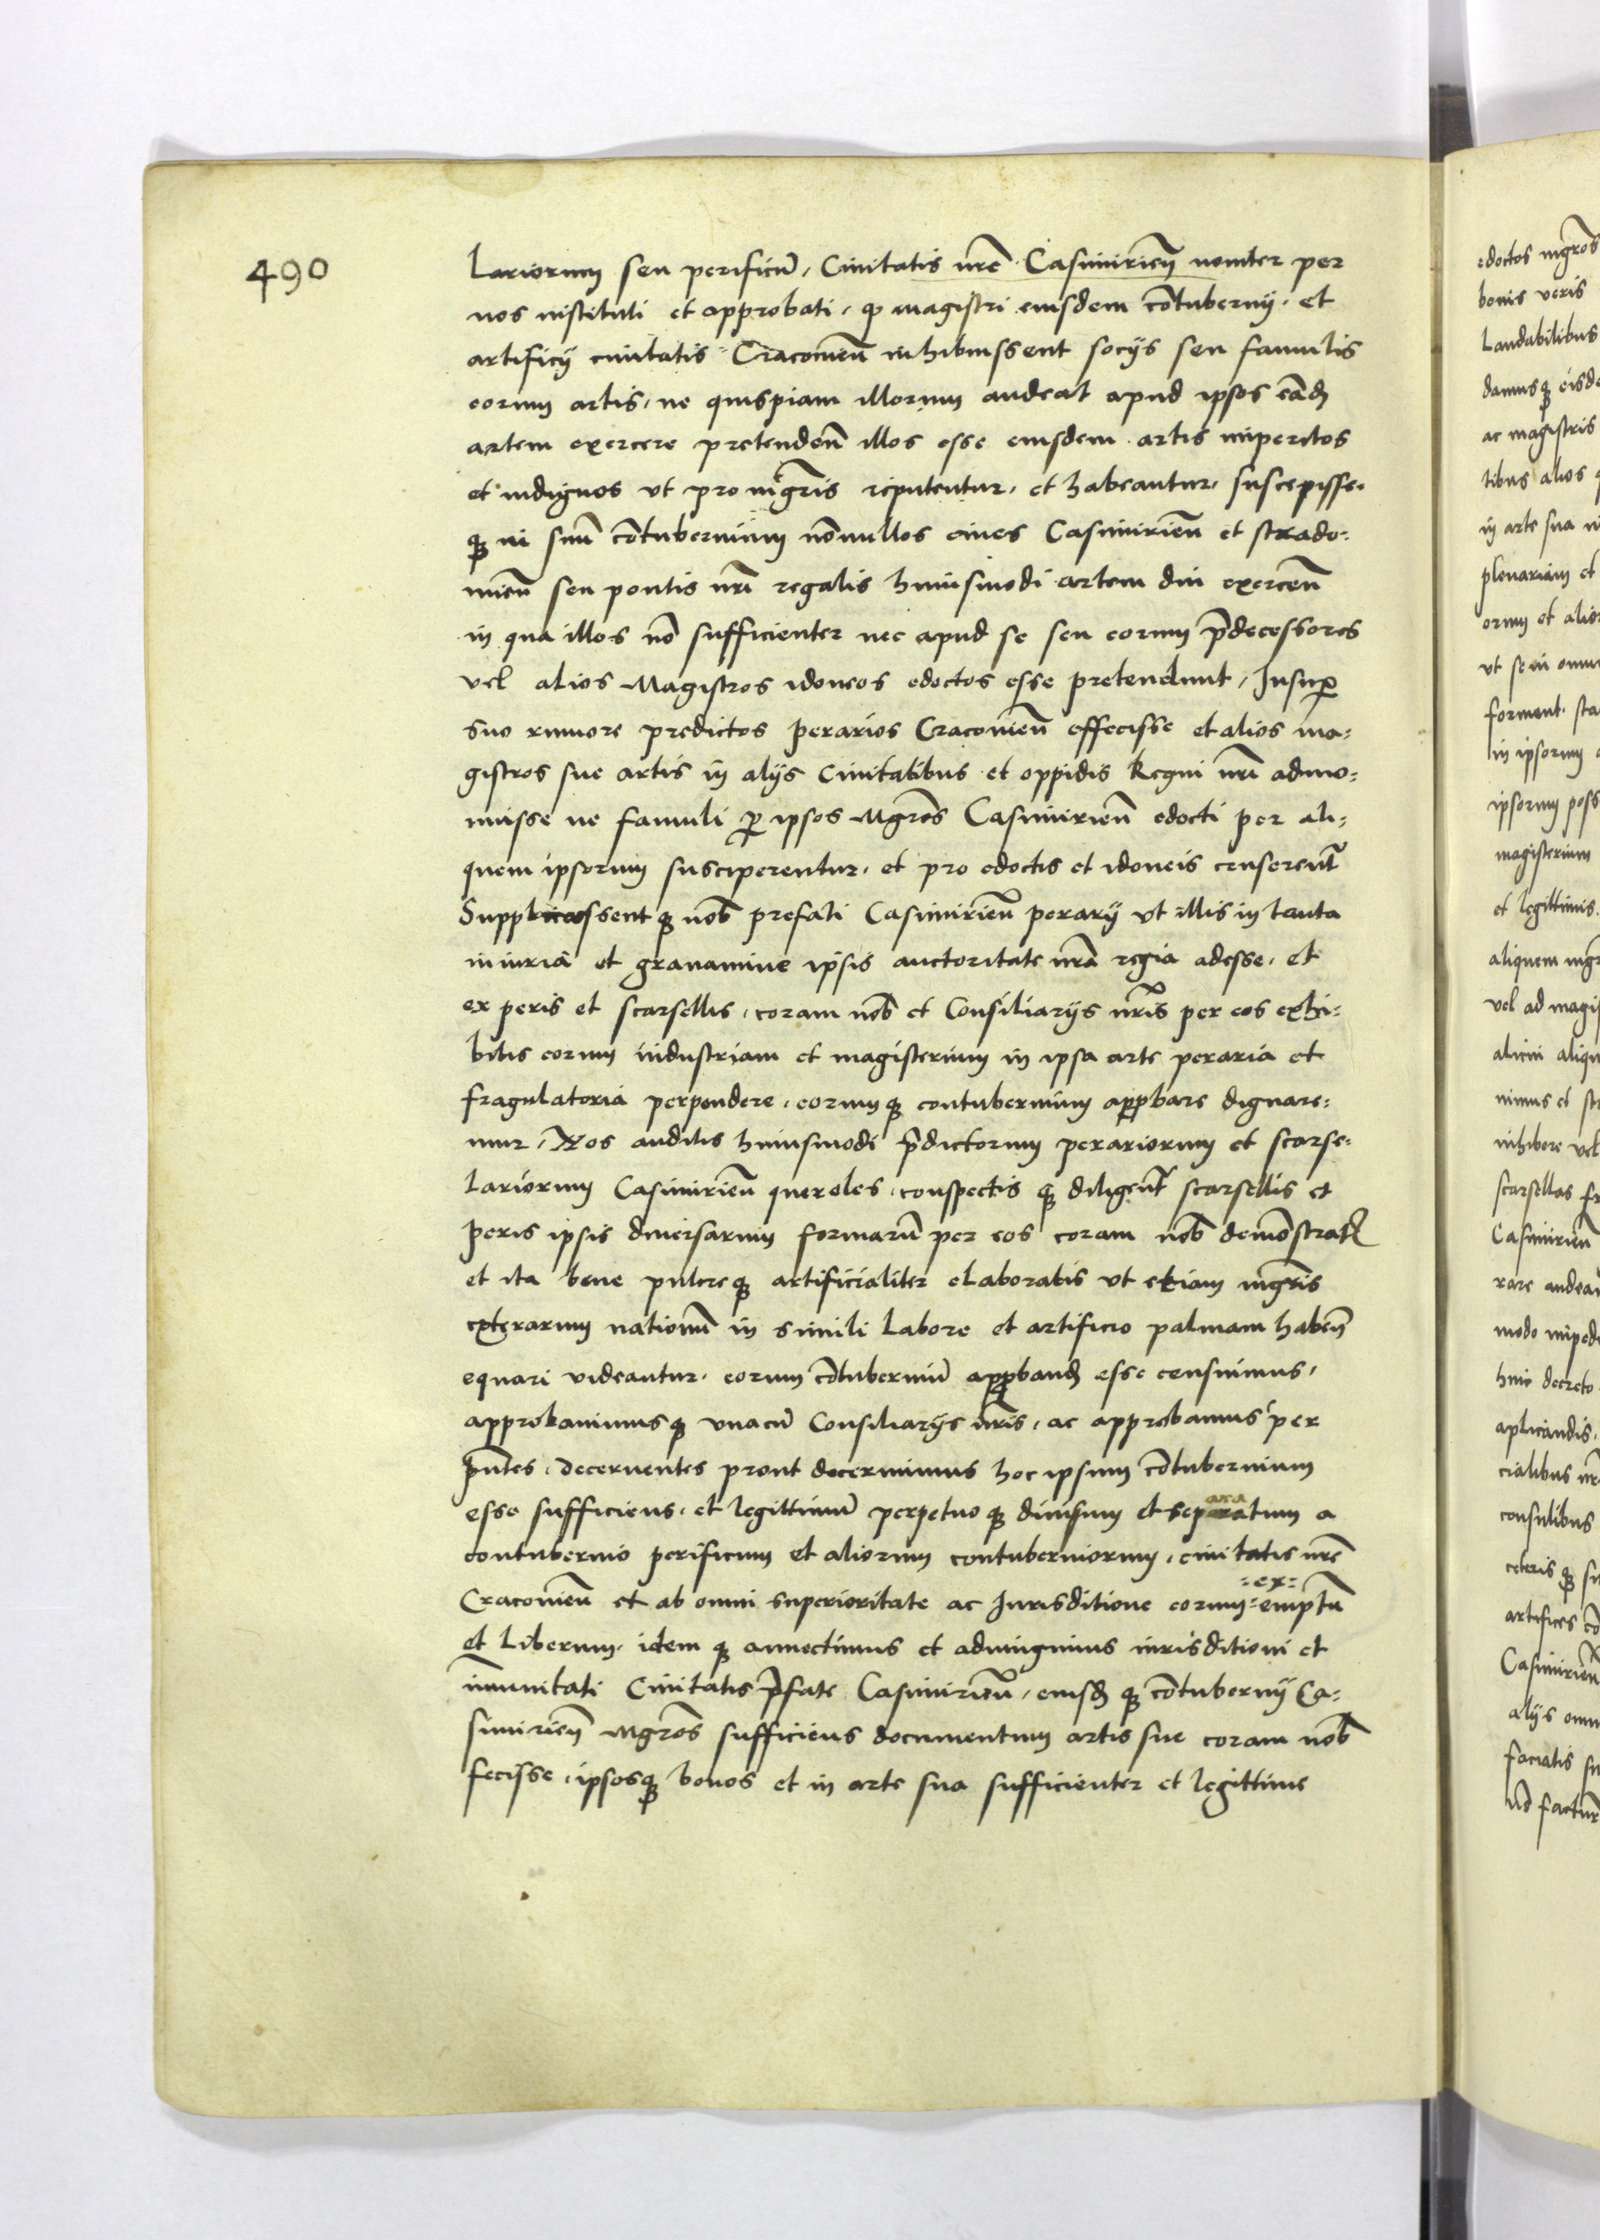 490
lariorum seu perificũ, Civitatis nr̃e Casimirieñ noviter per
nos instituti et approbati, qͥ magistri eiusdem cõtubernij et
artificij civitatis Cracovieñ inhibuissent socijs seu famulis
eorum artis, ne quispiam illorum audeat apud ipsos eãdẽ
artem exercere pretendeñ illos esse eiusdem artis imperitos
et indignos ut pro mgr̃is reputentur, et habeantur, suscepisse,
qꝫ in suũ cõtubernium nõnullos cives Casimirieñ et strado,
mieñ seu pontis nr̃i regalis huiusmodi artem diu exerceñ
in qua illos nõ sufficienter nec apud se seu eorum p̃decessores
vel alios Magistros idoneos edoctos esse pretendunt, Insuꝑ
suo rumore predictos perarios Cracovieñ effecisse et alios ma,
gistros sue artis in alijs Civitatibus et oppidis Regni nr̃i admo,
nuisse ne famuli ꝑ ipsos Mgr̃os Casimirieñ edocti per ali,
quem ipsorum susciperentur, et pro edoctis et idoneis censerent̃
Supplicassentqꝫ nob̃ prefati Casimirieñ perarij ut illis in tanta
iniuria et gravamine ipsis auctoritate nr̃a regia adesse, et
ex peris et scarsellis, coram nob̃ et Consiliarijs nr̃is per eos exhi,
bitis eorum industriam et magisterium in ipsa arte peraria et
fragulatoria perpendere, eorumqꝫ contubernium apꝓbare dignare,
mur, Nos auditis huiusmodi p̃dictorum perariorum et scarse,
lariorum Casimirieñ quereles, conspectis qꝫ diligent̃ scarsellis et
peris ipsis diversarum formarũ per eos coram nob̃ demõstrat̃
et ita bene pulcreqꝫ artificialiter elaboratis ut etiam mgr̃is
exterarum nationũ in simili labore et artificio palmam habeñ
equari videantur, eorum cõtuberniũ apꝓbandẽ esse censuimus,
approbavimusqꝫ unacũ Consiliarijs nr̃is, ac approbamus per
p̃ntes, decernentes prout decernimus hoc ipsum cõtubernium
esse sufficiens, et legittimũ perpetuoqꝫ divisum et separatum a
contubernio perificum et aliorum contuberniorum, civitatis nr̃e
Cracovieñ et ab omni superioritate ac Jurisditione eorum =ex= emptũ
et liberum, idem qꝫ annectimus et adiungimus iurisditioni et
im̃unitati Civitatis p̃fate Casimirieñ, eiusdẽ qꝫ cõtubernij Ca,
simirieñ Mgr̃os sufficiens documentum artis sue coram nob̃
fecisse, ipsosqꝫ bonos et in arte sua sufficienter et legittime
edoctos mgr̃os
bonis veris
laudabilibus
damusqꝫ eisde
ac magistris
tibus alios
in arte sua
plenariam et
orum et alior
ut se in omn
forment, sta
in ipsorum
ipsorum poss
magisterium
et legittimis
aliquem mgr̃
vel ad magis
alicui aliqu
nimus et st
inhibere vel
scarsellas fr
Casimirieñ
rare audea
modo impedi
huic decreto
aplicandis,
cialibus nr̃
consulibus
ceteris qꝫ su
artifices cõ
Casimirieñ
alijs omn
faciatis su
factur